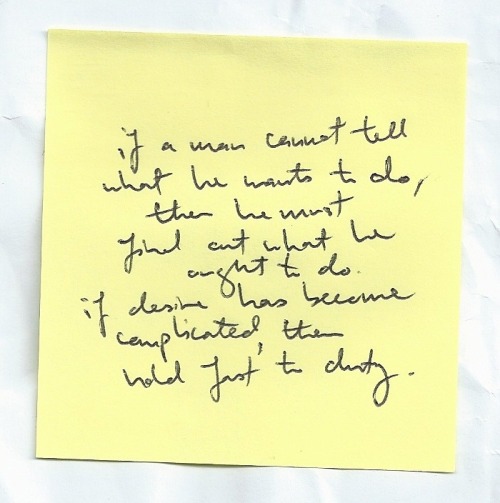 if a man cannot tell
what he wants to do,
then he must
find out what he
ought to do.
if desire has become
complicated, then
hold fast to duty.